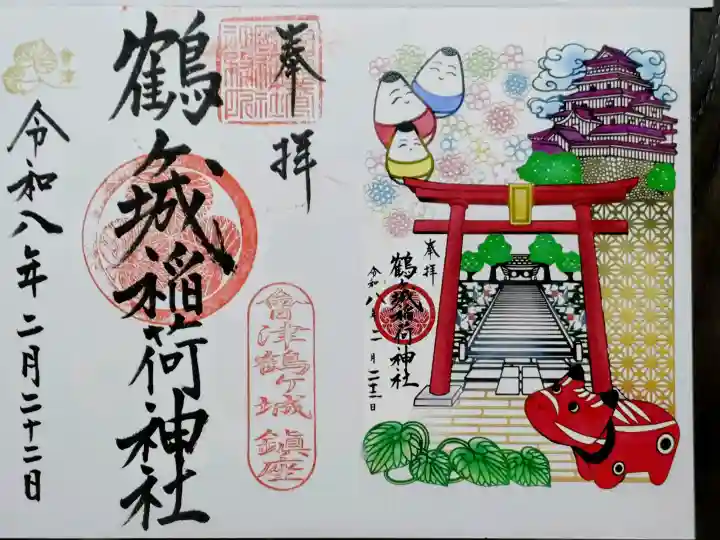 奉拝
鶴ヶ城稲荷神社
會津鶴ヶ城鎮座
令和八年二月二十二日
會津
奉拝
鶴ヶ城稲荷神社
令和八年二月二十二日